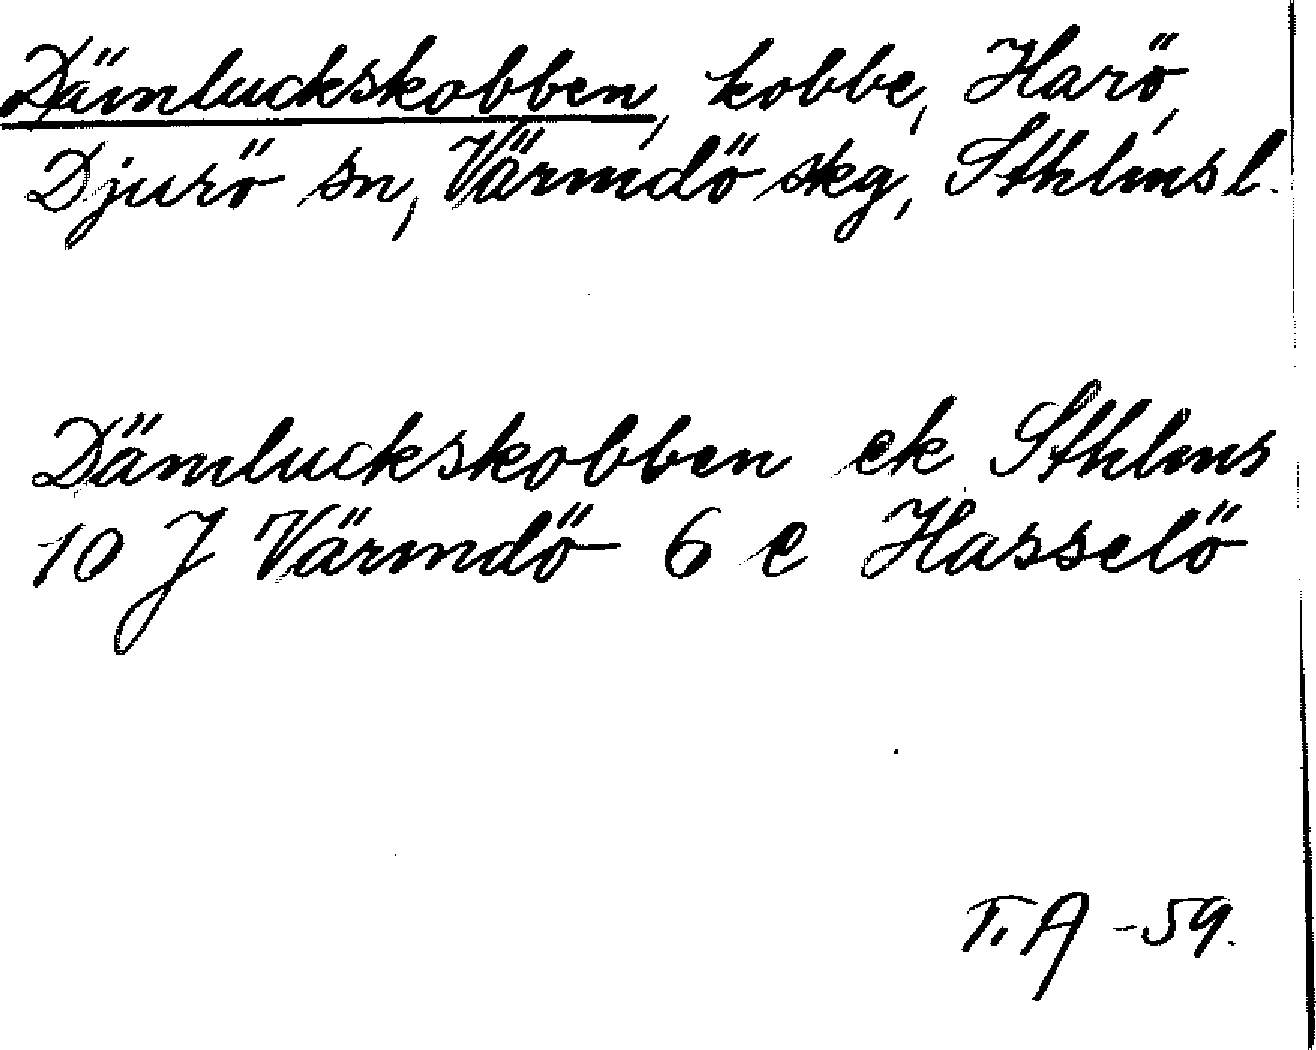 Dämluckskobben, kobbe, Harö,
Djurö sn, Värmdö skg, Sthlms l.
Dämluckskobben ek Sthlms
10 J Värmdö 6 e Hasselö
T. A -59.